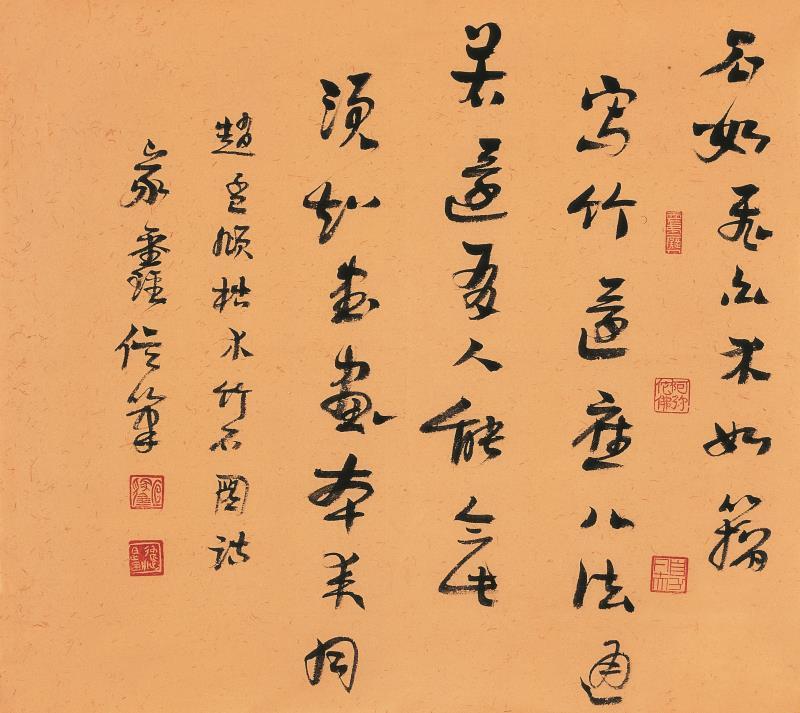 石如飛白木如籀
寫竹還應八法通
若還有人能會此
須知書畫本來同
趙孟頫枯木竹石圖詩
家鑫信筆
阿弥陀佛